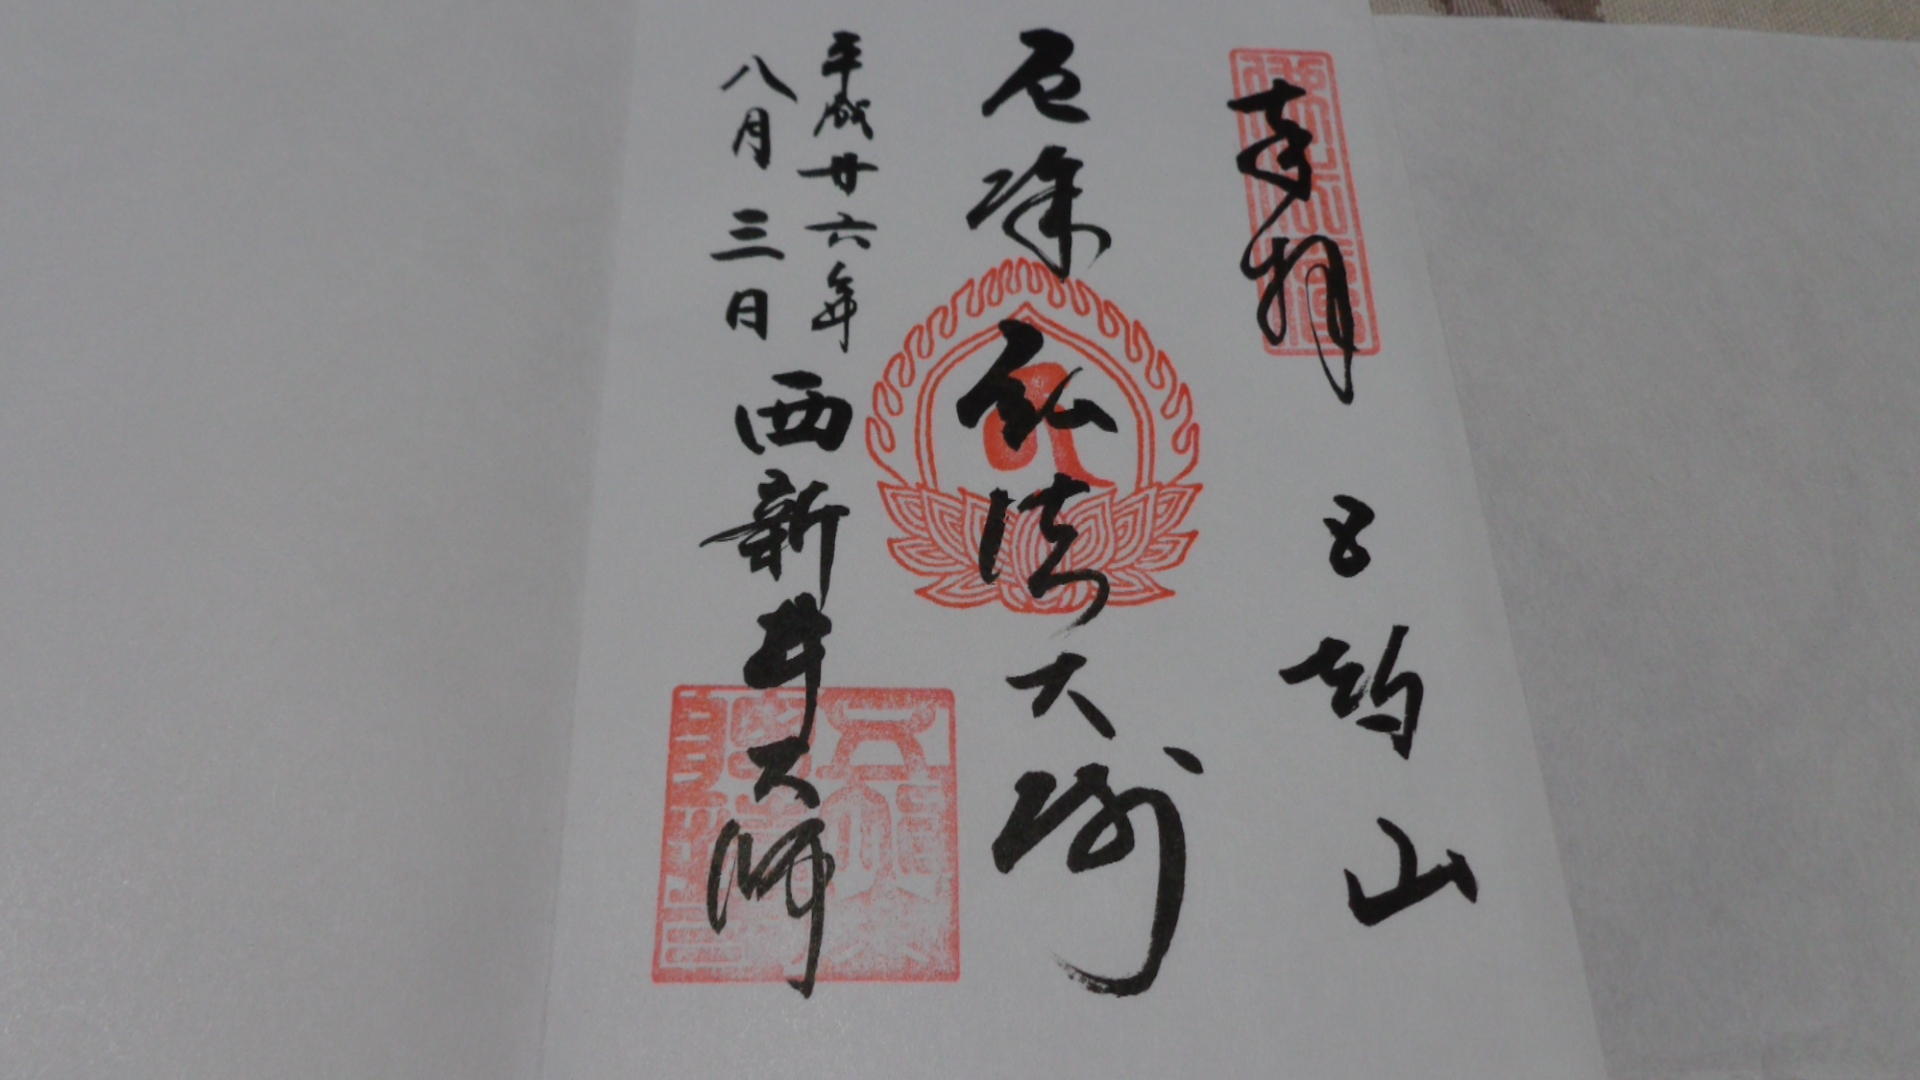 奉拝
五智山
厄除弘法大師
平成廿六年
八月三日
西新井大師